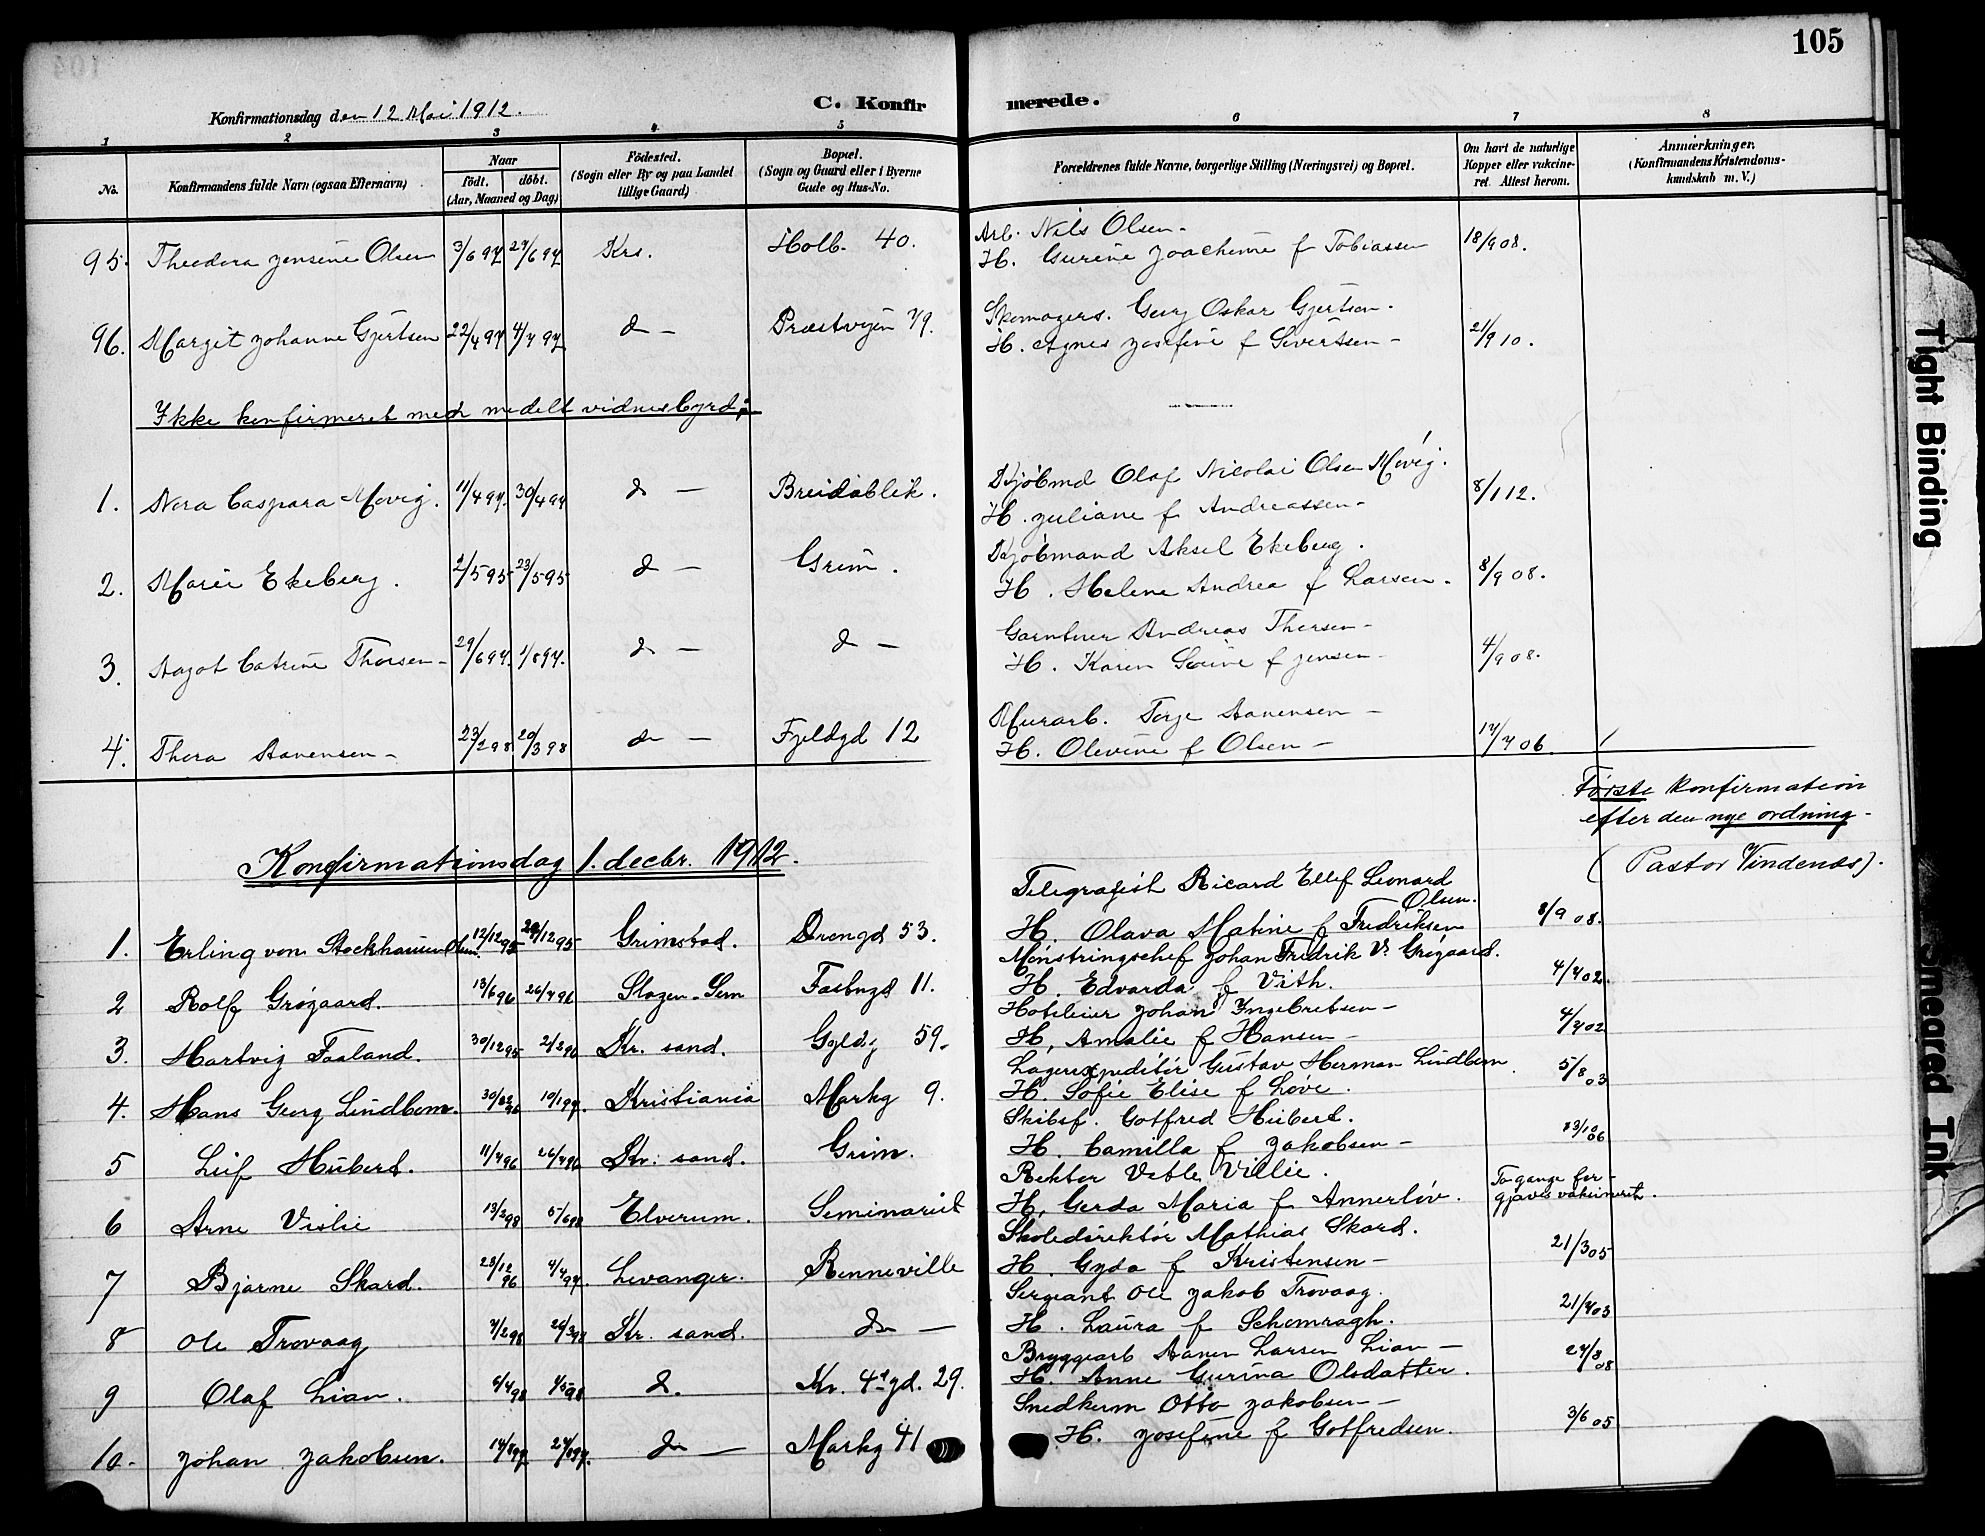 105
Konfirmationsdag den 12 Mai 1912.
C. Konfirmerede.
1 2 3 4 5 6 7 8
No.
Konfirmandens fulde Navn (ogsaa Efternavn)
Naar
födt. döbt.
(Aar, Maaned og Dag)
Födested.
(Sogn eller By og paa Landet
tillige Gaard)
Bopæl.
(Sogn og Gaard eller i Byerne
Gade og Hus-No.
Forældrenes fulde Navne, borgerlige Stilling (Næringsvei) og Bopæl.
Om havt de naturlige
Kopper eller vakcine-
ret. Attest herom.
Anmærkninger.
(Konfirmandens Kristendoms-
kundskab m. V.)
95. Theodora Jensine Olsen 3/6 97 27/6 97 Krs. Holb. 40. Arb. Nils Olsen.
H. Gurine Joachime f Tobiassen 18/9 08.
96. Margit Johanne Gjertsen 22/4 97 4/7 97 do - Præstvejen 7/9. Skomagers. Georg Oskar Gjertsen.
H. Agnes Josefine f Sivertsen - 21/9 10.
Ikke konfirmeret men medelt vidnesbyrd;
1. Nora Caspara Movig. 11/4 97. 30/4 97 do - Breidablik. Kjöbmd Olaf Nicolai Olsen Movig.
H. Juliane f Andreassen - 8/1 12.
2. Marie Ekeberg. 2/5 95 23/5 95 do - Grim. Kjöbmand Aksel Ekeberg.
H. Helene Andrea f Larsen. 8/9 08.
3. Aagot Catrine Thorsen - 29/6 97. 1/8 97. do - do - Gartner Andreas Thorsen -
H. Karen Sovine f Jensen - 4/9 08.
4. Thora Aanensen - 23/2 98 20/3 98 do - Fjeldgd 12 Murarb. Terje Aanensen -
H. Olevine f Olsen - 17/7 06.
Første konfirmation
efter den nye ordning -
(Pastor Vindenæs).
Konfirmationsdag 1. decbr. 1912.
1. Erling von Stockhausen Olsen. 12/12 95 29/12 95 Grimstad. Drengd 53. Telegrafist Ricard Ellef Leonard
Olsen.
H. Olava Matine f Fredriksen 8/9 08.
2 Rolf Grøgaard. 13/6 96 26/7 96 Slagen - Sem Fasbugd 11. Mønstringschef Johan Fredrik V. Grøgaard.
H. Edvarda f Vith. 4/7 02.
3. Hartvig Faaland. 30/12 95 2/2 96 Kr. sand. Gyldg 59. Hoteleier Johan Ingebretsen -
H. Amalie f Hansen - 4/7 02
4. Hans Georg Lindbom. 30/12 96 10/1 97. Kristiania Markg 9. Lagerexpeditör Gustav Herman Lindbom.
H. Sofie Elise f Løve. 5/8 03
5 Leif Hubert. 11/4 96 26/4 96 Kr. sand. Grim. Skibsf. Gotfred Hubert.
H. Camilla f Jakobsen - 23/10 06
6 Arne Vislie 13/2 98 5/6 98 Elverum. Seminariet Rektor Vetle Vislie.
H. Gerda Maria f Annerløv. To gange for-
gjæves vaksineret.
7 Bjarne Skard. 28/12 96 4/4 97. Levanger. Renneville Skoledirektör Mathias Skard.
H. Gyda f Kristensen - 21/3 05
8 Ole Trovaag 7/2 98 20/3 98 Kr. sand. do - Sergeant Ole Jakob Trovaag.
H. Laura f Schomragh. 21/7 03
9 Olaf Lian. 6/4 98 1/5 98 do. Kv. 4de gd. 29. Bryggearb Aanen Larsen Lian -
H. Anne Gurina Olsdatter. 27/8 08
10. Johan Jakobsen. 14/8 97 27/8 97. do - Markg 41 Snedkerm Otto Jakobsen -
H. Josefine f Gotfredsen. 3/6 05
Tight Binding
Smeared Ink